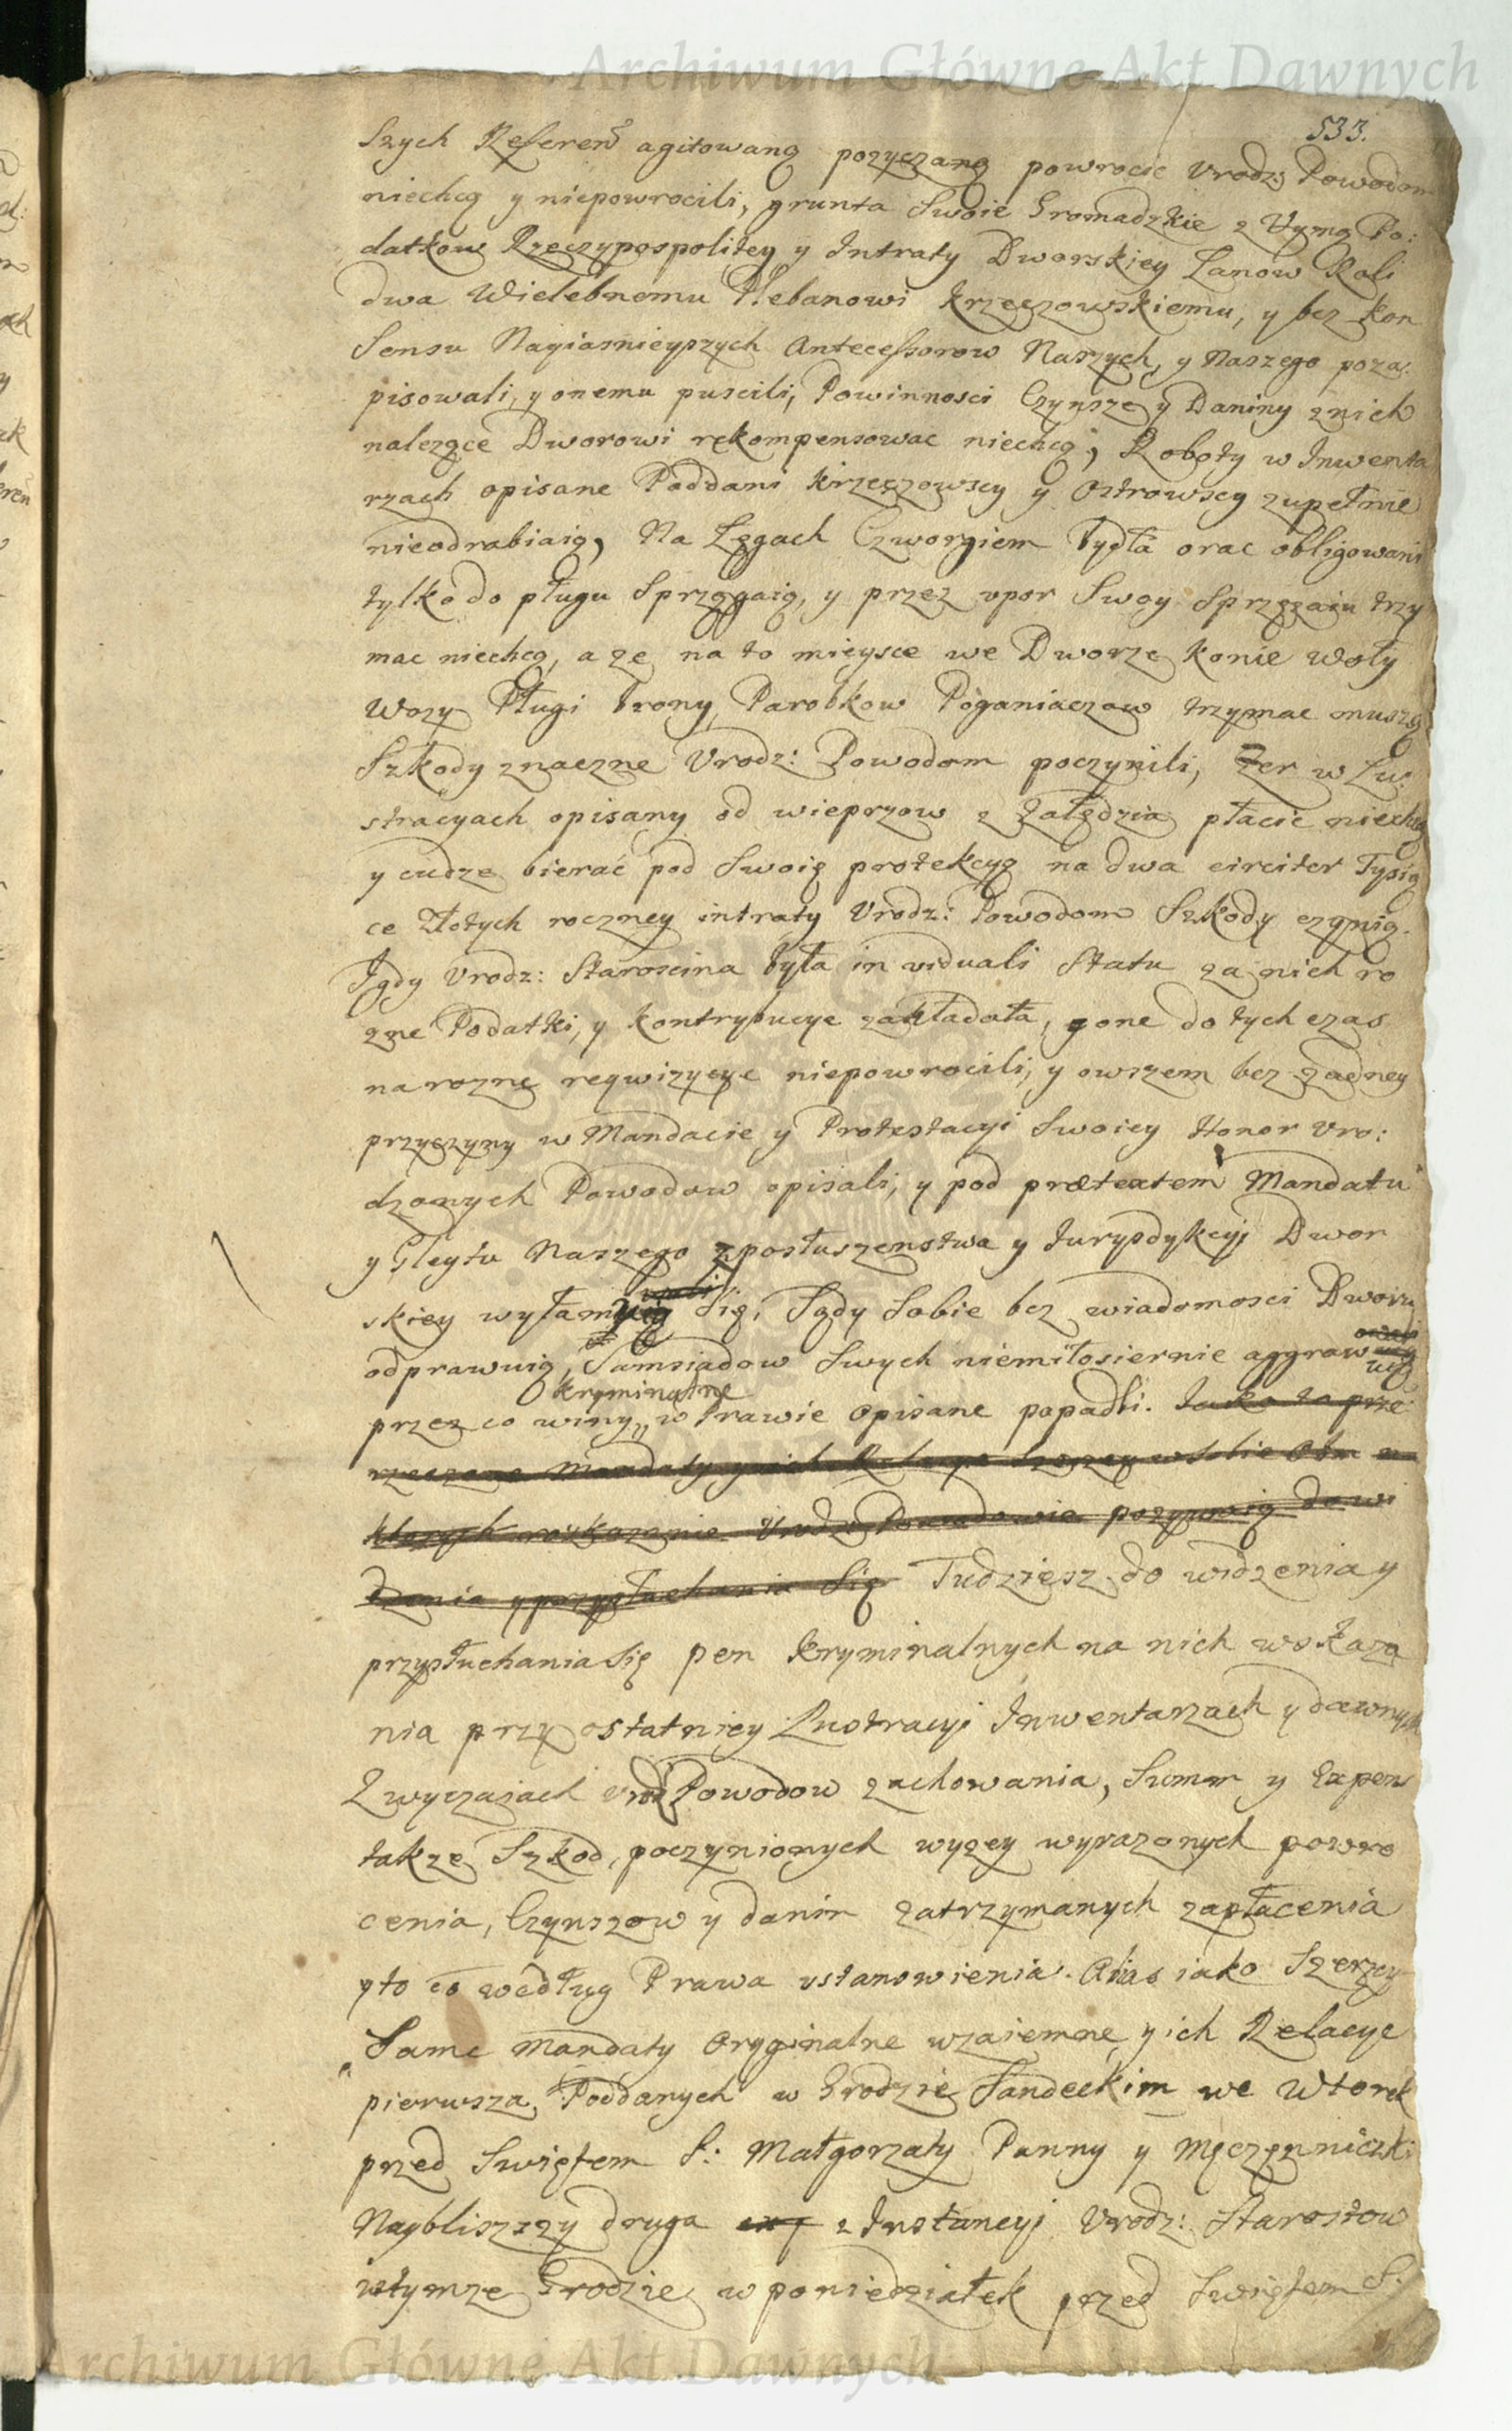 Archiwum Główne Akt Dawnych
533.
szych Referen. agitowaną pozyczaną powrocic Urodz: Powodom
niechcą y niepowrocili, grunta Swoie Gromadzkie z Uymą Po:
datkow Rzeczypospolitey y Intraty Dworskiey Lanow Roli
dwa Wielebnemu Plebanowi Krzeczowskiemu, y bez kon
sensu Nayiasnieyszych Antecessorow Naszych, y Naszego poza:
pisowali, y onemu puscili, Powinnosci Czynsze y Daniny znich
nalezące Dworowi rekompensowac niechcą, Roboty w Inwenta
rzach opisane Poddani Krzeczowscy y Ostrowscy zupełnie
nieodrabiaią, Na Łęgach Czworgiem Bydła orac obligowani
tylko do pługu Sprzęgaią, y przez upor Swoy Sprzęzaiu trzy
mac niechcą, a ze na to mieysce we Dworze konie woły
wozy Pługi brony Parobkow Poganiaczow trzymac muszą
Szkody znaczne Urodz: Powodom poczynili, Zer w Lu:
stracyach opisany od wieprzow z Załędzia płacic niechcą
y cudze bierać pod Swoię protekcyą na dwa circiter Tysią
ce Złotych roczney intraty Urodz: Powodom Szkody czynią.
Igdy Urodz: Staroscina była in viduali Statu za nich ro
zne Podatki, y kontrybucye zakładała, y one do tych czas
na rozne reqwizycye niepowrocili, y owszem bez zadney
przyczyny w Mandacie y Protestacyi Swoiey Honor Uro:
dzonych Powodow opisali, y pod prætextem Mandatu
y Gleytu Naszego z posłuszenstwa y Iurysdykcyi Dwor
skiey wyłamuią Się, Sądy Sobie bez wiadomosci Dworu
odprawuią, Samsiadow Swych niemiłosiernie aggrawuią
kryminalne
przez co winy w Prawie opisane popadli. Iako to prze
rzeczone Mandaty y ich Relacye Szerzey w Sobie
ktorych Urodz: Powodowie pozywaią do wi
dzenia y przysłuchania Się Tudziesz do widzenia y
przysłuchania Się pen kryminalnych na nich wskaza
nia przy ostatniey Lustracyi Inwentarzach y dawnych
Zwyczaiach Urodz Powodow zachowania, Summ y Expens
takze Szkod, poczynionych wyzey wyrazonych powro
cenia, Czynszow y danin zatrzymanych zapłacenia
y to co według Prawa ustanowienia. Alias iako Szerzey
Same Mandaty Oryginalne wzaiemne y ich Relacye
pierwsza Poddanych w Grodzie Sandeckim we Wtorek
przed Swiętem S: Małgorzaty Panny y Męczenniczki
Naybliszszy druga z Instancyi Urodz: Starostow
wtymze Grodzie w poniedziałek przed Swiętem S:
Archiwum Główne Akt Dawnych